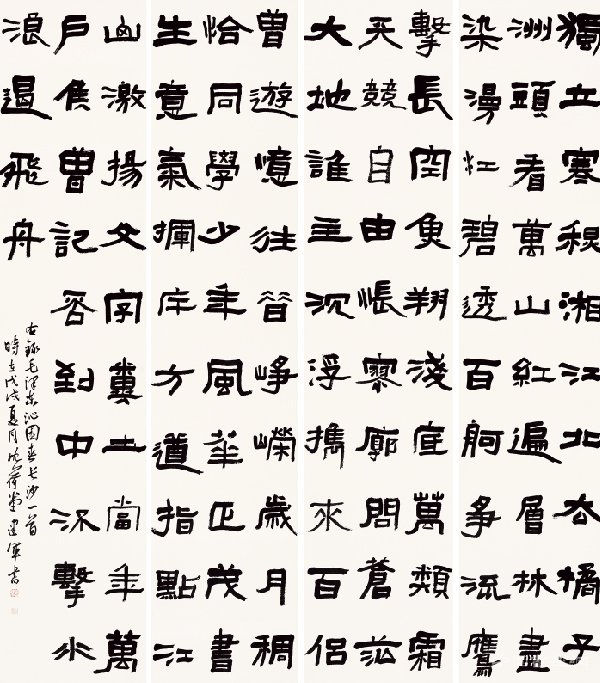 獨立寒秋湘江北去橘子
洲頭看萬山紅遍層林盡
染漫江碧透百舸爭流鷹
擊長空魚翔淺底萬類霜
天競自由悵寥廓問蒼茫
大地誰主沈浮攜來百侶
曾遊憶往昔崢嶸歲月稠
恰同學少年風華正茂書
生意氣揮斥方遒指點江
山激揚文字糞土當年萬
戶侯曾記否到中流擊水
浪遏飛舟
右錄毛澤東沁園春長沙一首
時在戊戌夏月建軍書